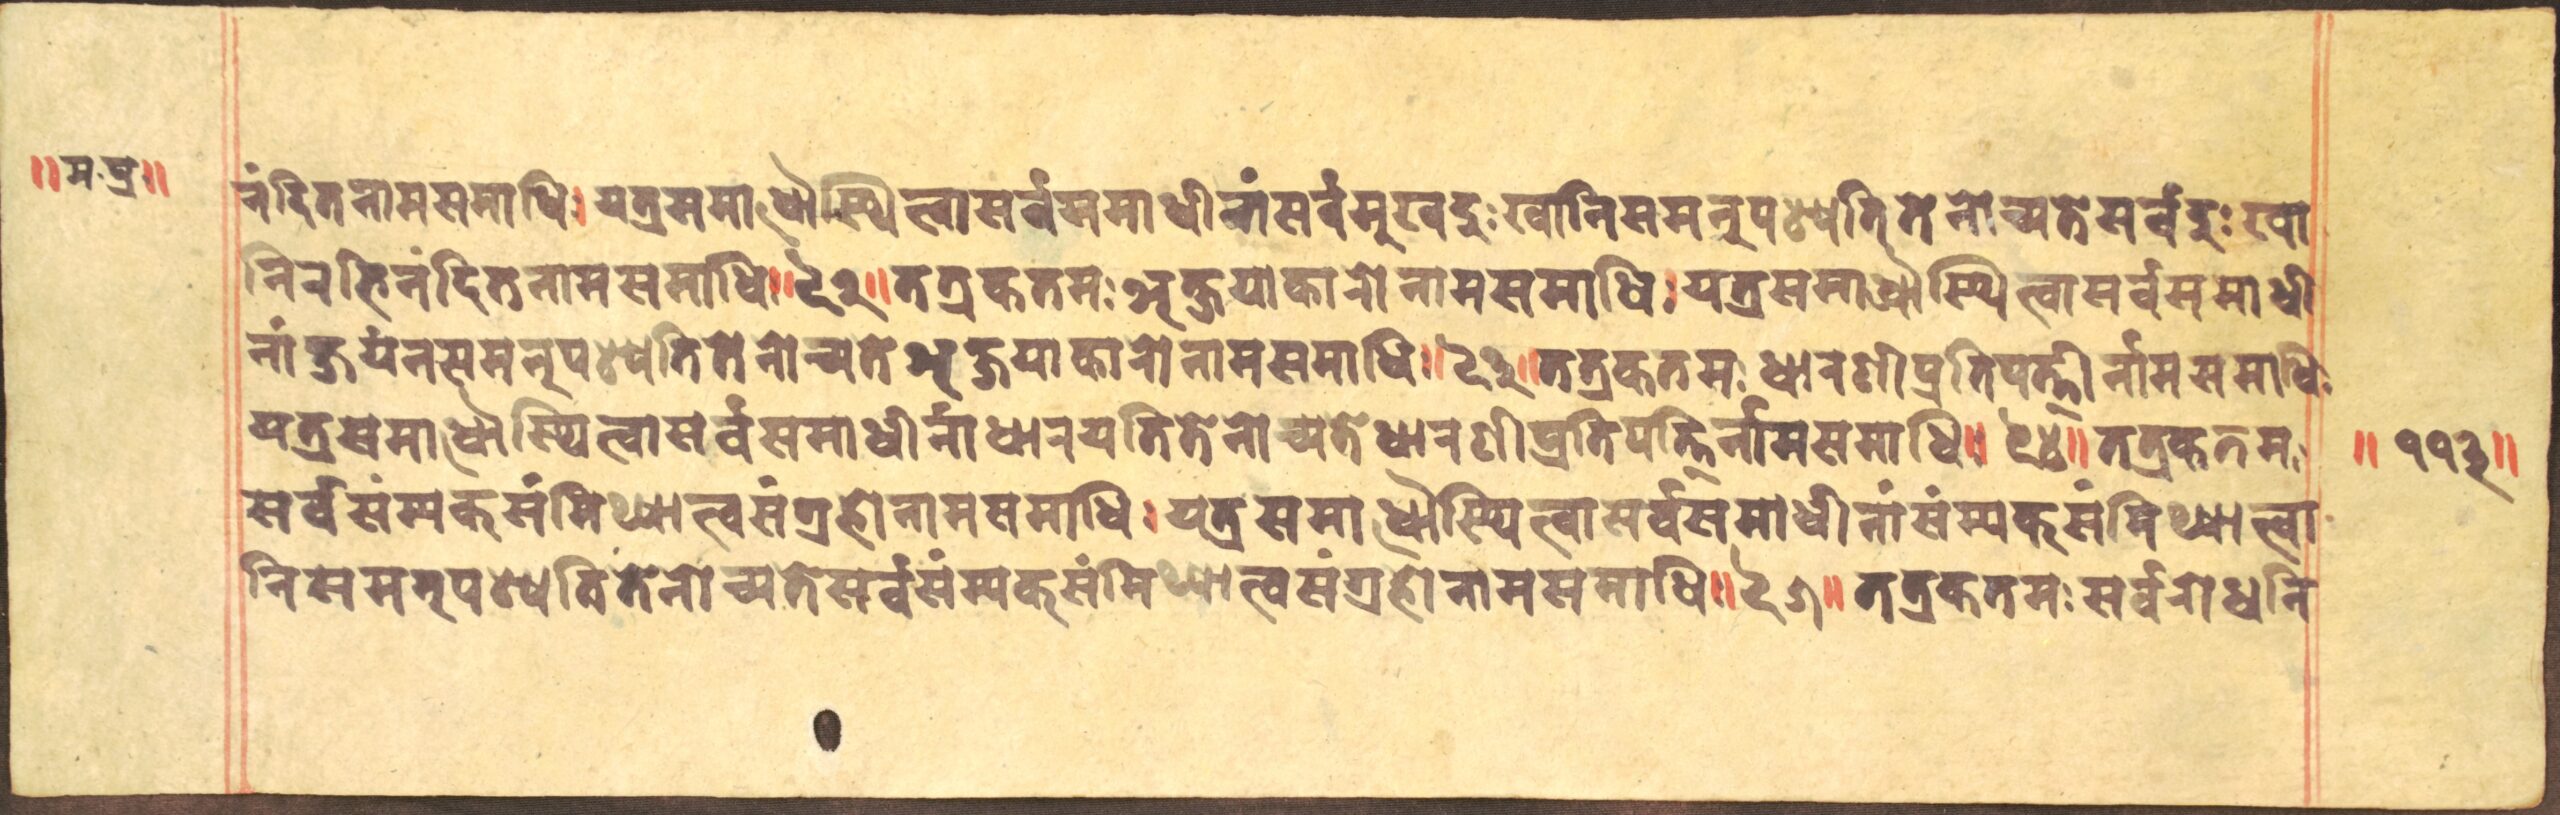 ॥म·प्र·॥
नंदितनामसमाधिः यत्रसमाधौस्थित्वासर्वसमाधीनांसर्वसुखदुःखानिसमनुपश्यतितेनोच्यतेसर्वदुःखा
निरभिनंदितनामसमाधिः॥९२॥तत्रकतमःअक्षयाकारोनामसमाधिः यत्रसमाधौस्थित्वासर्वसमाधी
नांक्षयंनसमनुपश्यतितेनोच्यतेअक्षयाकारोनामसमाधिः॥९३॥तत्रकतमःधारणीप्रतिपत्तिर्नामसमाधिः
यत्रसमाधौस्थित्वासर्वसमाधीर्नाधारयतितेनोच्यतेधारणीप्रतिपत्तिर्नामसमाधिः॥९४॥तत्रकतमः
सर्वसंम्यक्संमिथ्यात्वसंग्रहोनामसमाधिः यत्रसमाधौस्थित्वासर्वसमाधीनांसंम्यक्संमिथ्यात्वा
निसमनुपश्यतितेनोच्यतेसर्वसंम्यक्संमिथ्यात्वसंग्रहोनामसमाधिः॥९५॥तत्रकतमःसर्वरोधनि
॥११३॥